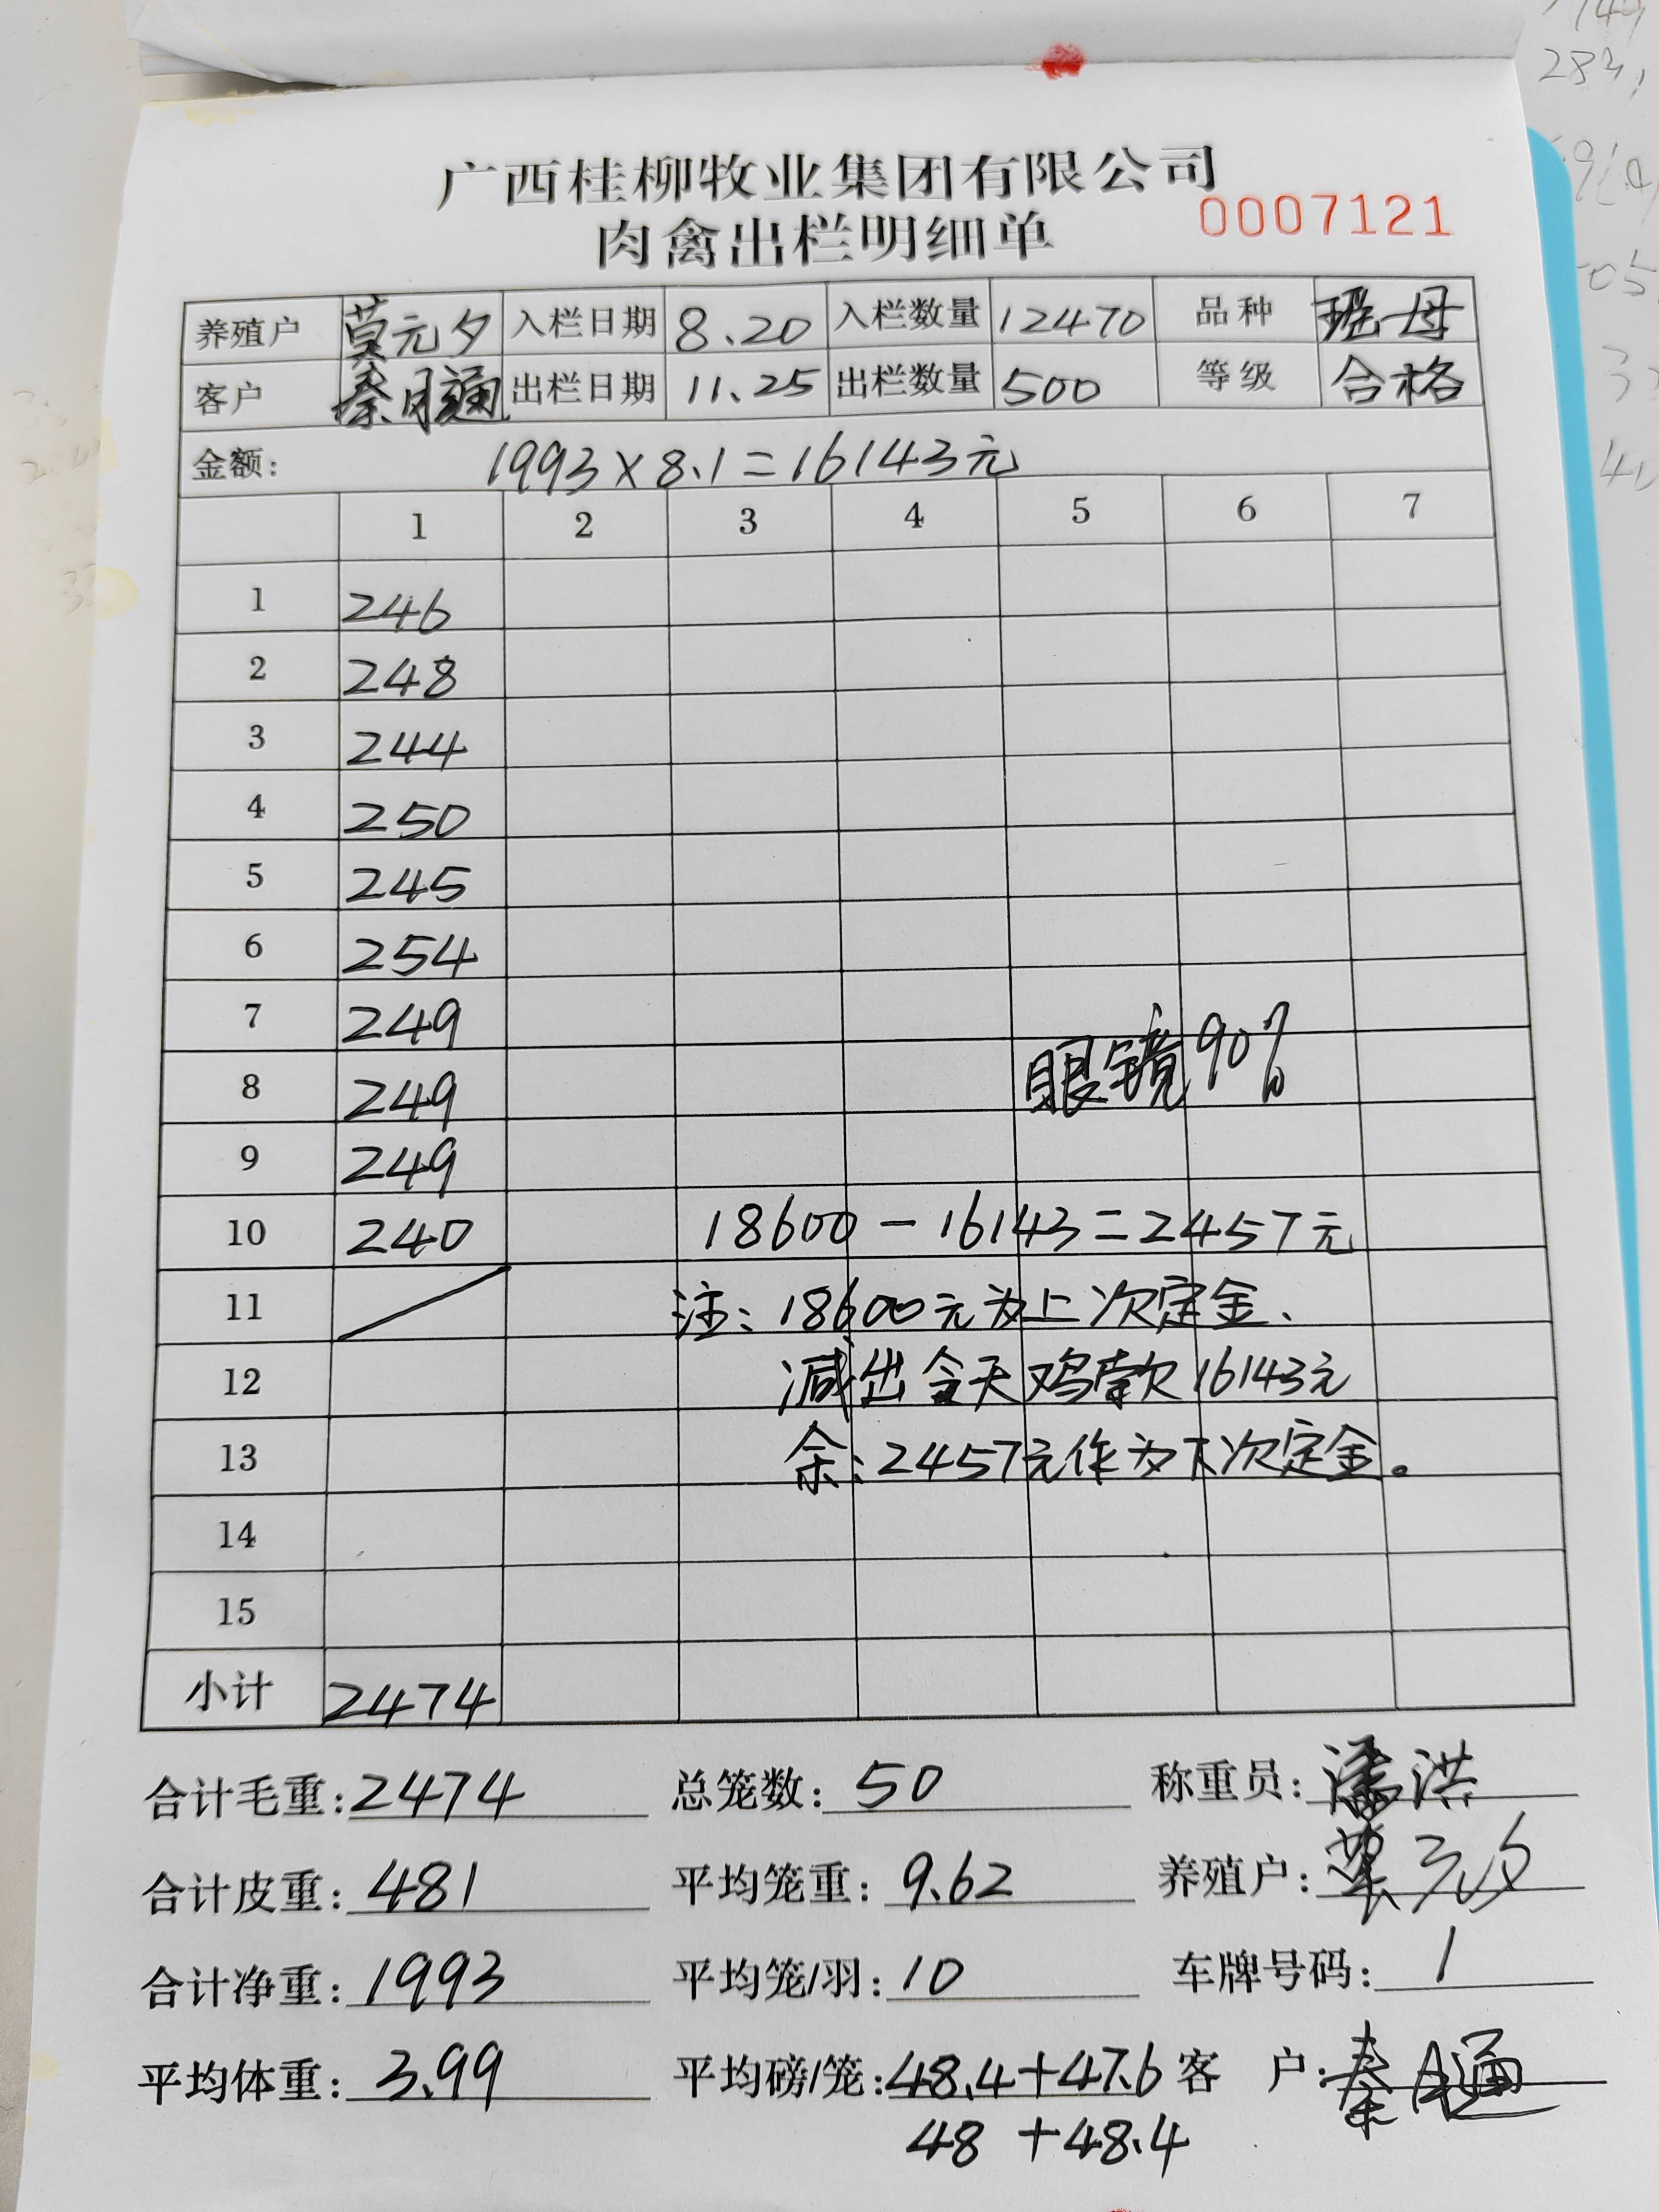 广西桂柳牧业集团有限公司
肉禽出栏明细单 0007121
养殖户 莫元夕 入栏日期 8.20 入栏数量 12470 品种 瑶母
客户 秦月通 出栏日期 11.25 出栏数量 500 等级 合格
金额: 1993×8.1=16143元
1 2 3 4 5 6 7
1 246
2 248
3 244
4 250
5 245
6 254
7 249
8 249 眼镜90%
9 249
10 240 18600-16143=2457元
11 注:18600元为上次定金、
12 减出今天鸡款16143元
13 余:2457元作为下次定金。
14
15
小计 2474
合计毛重:2474 总笼数:50 称重员:潘洪
合计皮重:481 平均笼重:9.62 养殖户:莫元夕
合计净重:1993 平均笼/羽:10 车牌号码:1
平均体重:3.99 平均磅/笼:48.4+47.6 客 户:秦月通
48 +48.4